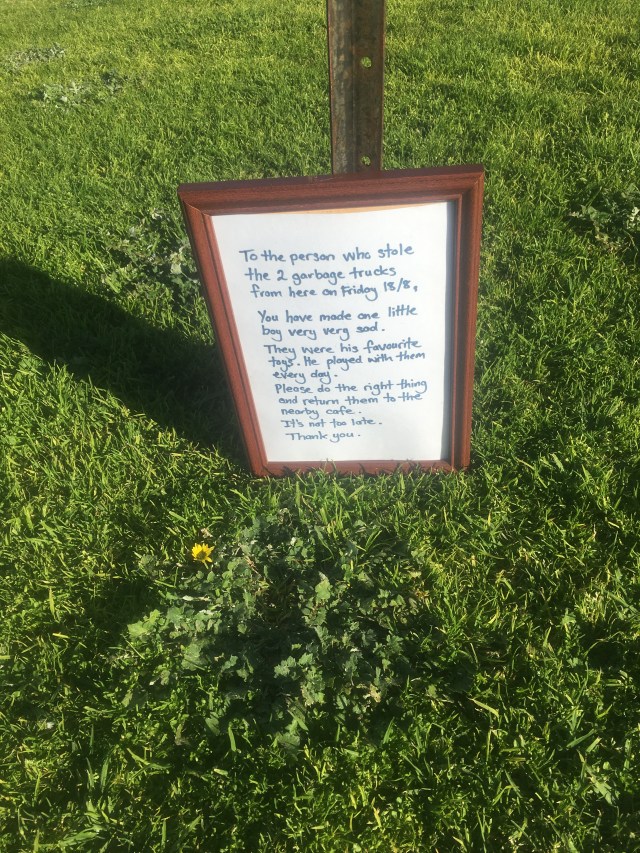 To the person who stole
the 2 garbage trucks
from here on Friday 18/8,
You have made one little
boy very very sad.
They were his favourite
toys. He played with them
every day.
Please do the right thing
and return them to the
nearby cafe.
It's not too late.
Thank you.